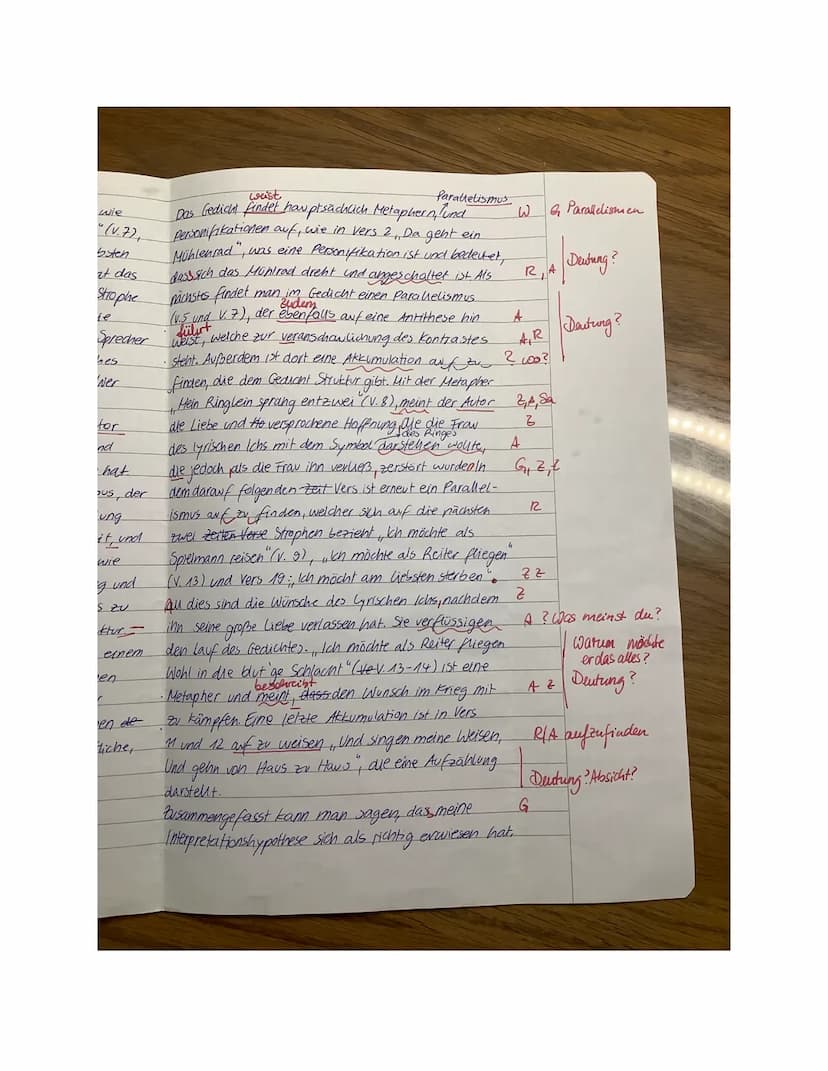 wie
"(V.7),
bsten
zt das
Strophe
te
Sprecher
hes
tor
nd
hat
ous, der
ung
it, und
wie
g und
s zu
ktur
einem
en
r
en de
tliche,
weist Parallelismus
Das Gedicht findet hauptsächlich Metaphern, und W G Parallelismen
Personifikationen auf, wie in Vers 2 „Da geht ein
Mühlenrad", was eine Personifikation ist und bedeutet, Deutung?
dass sich das Mühlrad dreht und angeschaltet ist. Als R, A
nächstes findet man im Gedicht einen Parallelismus
zudem
(V.5 und V.7), der ebenfalls auf eine Antithese hin A Deutung?
führt
weist, welche zur veranschaulichung des Kontrastes A, R
steht. Außerdem ist dort eine Akkumulation auf zu ? wo?
finden, die dem Gedicht Struktur gibt. Mit der Metapher
„Mein Ringlein sprang entzwei" (V.8), meint der Autor Z, A, Sa
die Liebe und versprochene Hoffnung, die die Frau Z
des Ringes
des lyrischen Ichs mit dem Symbol darstehen wollte, A
die jedoch, als die Frau ihn verließ, zerstört wurden. In G, Z, Z
dem darauf folgenden Zeit Vers ist erneut ein Parallel-
ismus auf zu finden, welcher sich auf die nächsten R
zwei Zeilen Verse Strophen bezieht „Ich möchte als
Spielmann reisen" (V. 9), „Ich möchte als Reiter fliegen"
(V.13) und Vers 19: „Ich möcht am liebsten sterben". Z Z
All dies sind die Wünsche des Lyrischen Ichs, nachdem Z
ihn seine große Liebe verlassen hat. Sie verflüssigen A ? Was meinst du?
den Lauf des Gedichtes. „Ich möchte als Reiter fliegen Warum möchte
er das alles?
Wohl in die blut'ge Schlacht" (Ve V. 13-14) ist eine Deutung?
beschreibt
Metapher und meint, dass den Wunsch im Krieg mit A Z
zu kämpfen. Eine letzte Akkumulation ist in Vers
11 und 12 auf zu weisen „Und singen meine Weisen, R/A aufzufinden
Und gehn von Haus zu Haus", die eine Aufzählung
darstellt. Deutung? Absicht?
Zusammengefasst kann man sagen, dass meine G
Interpretationshypothese sich als richtig erwiesen hat.